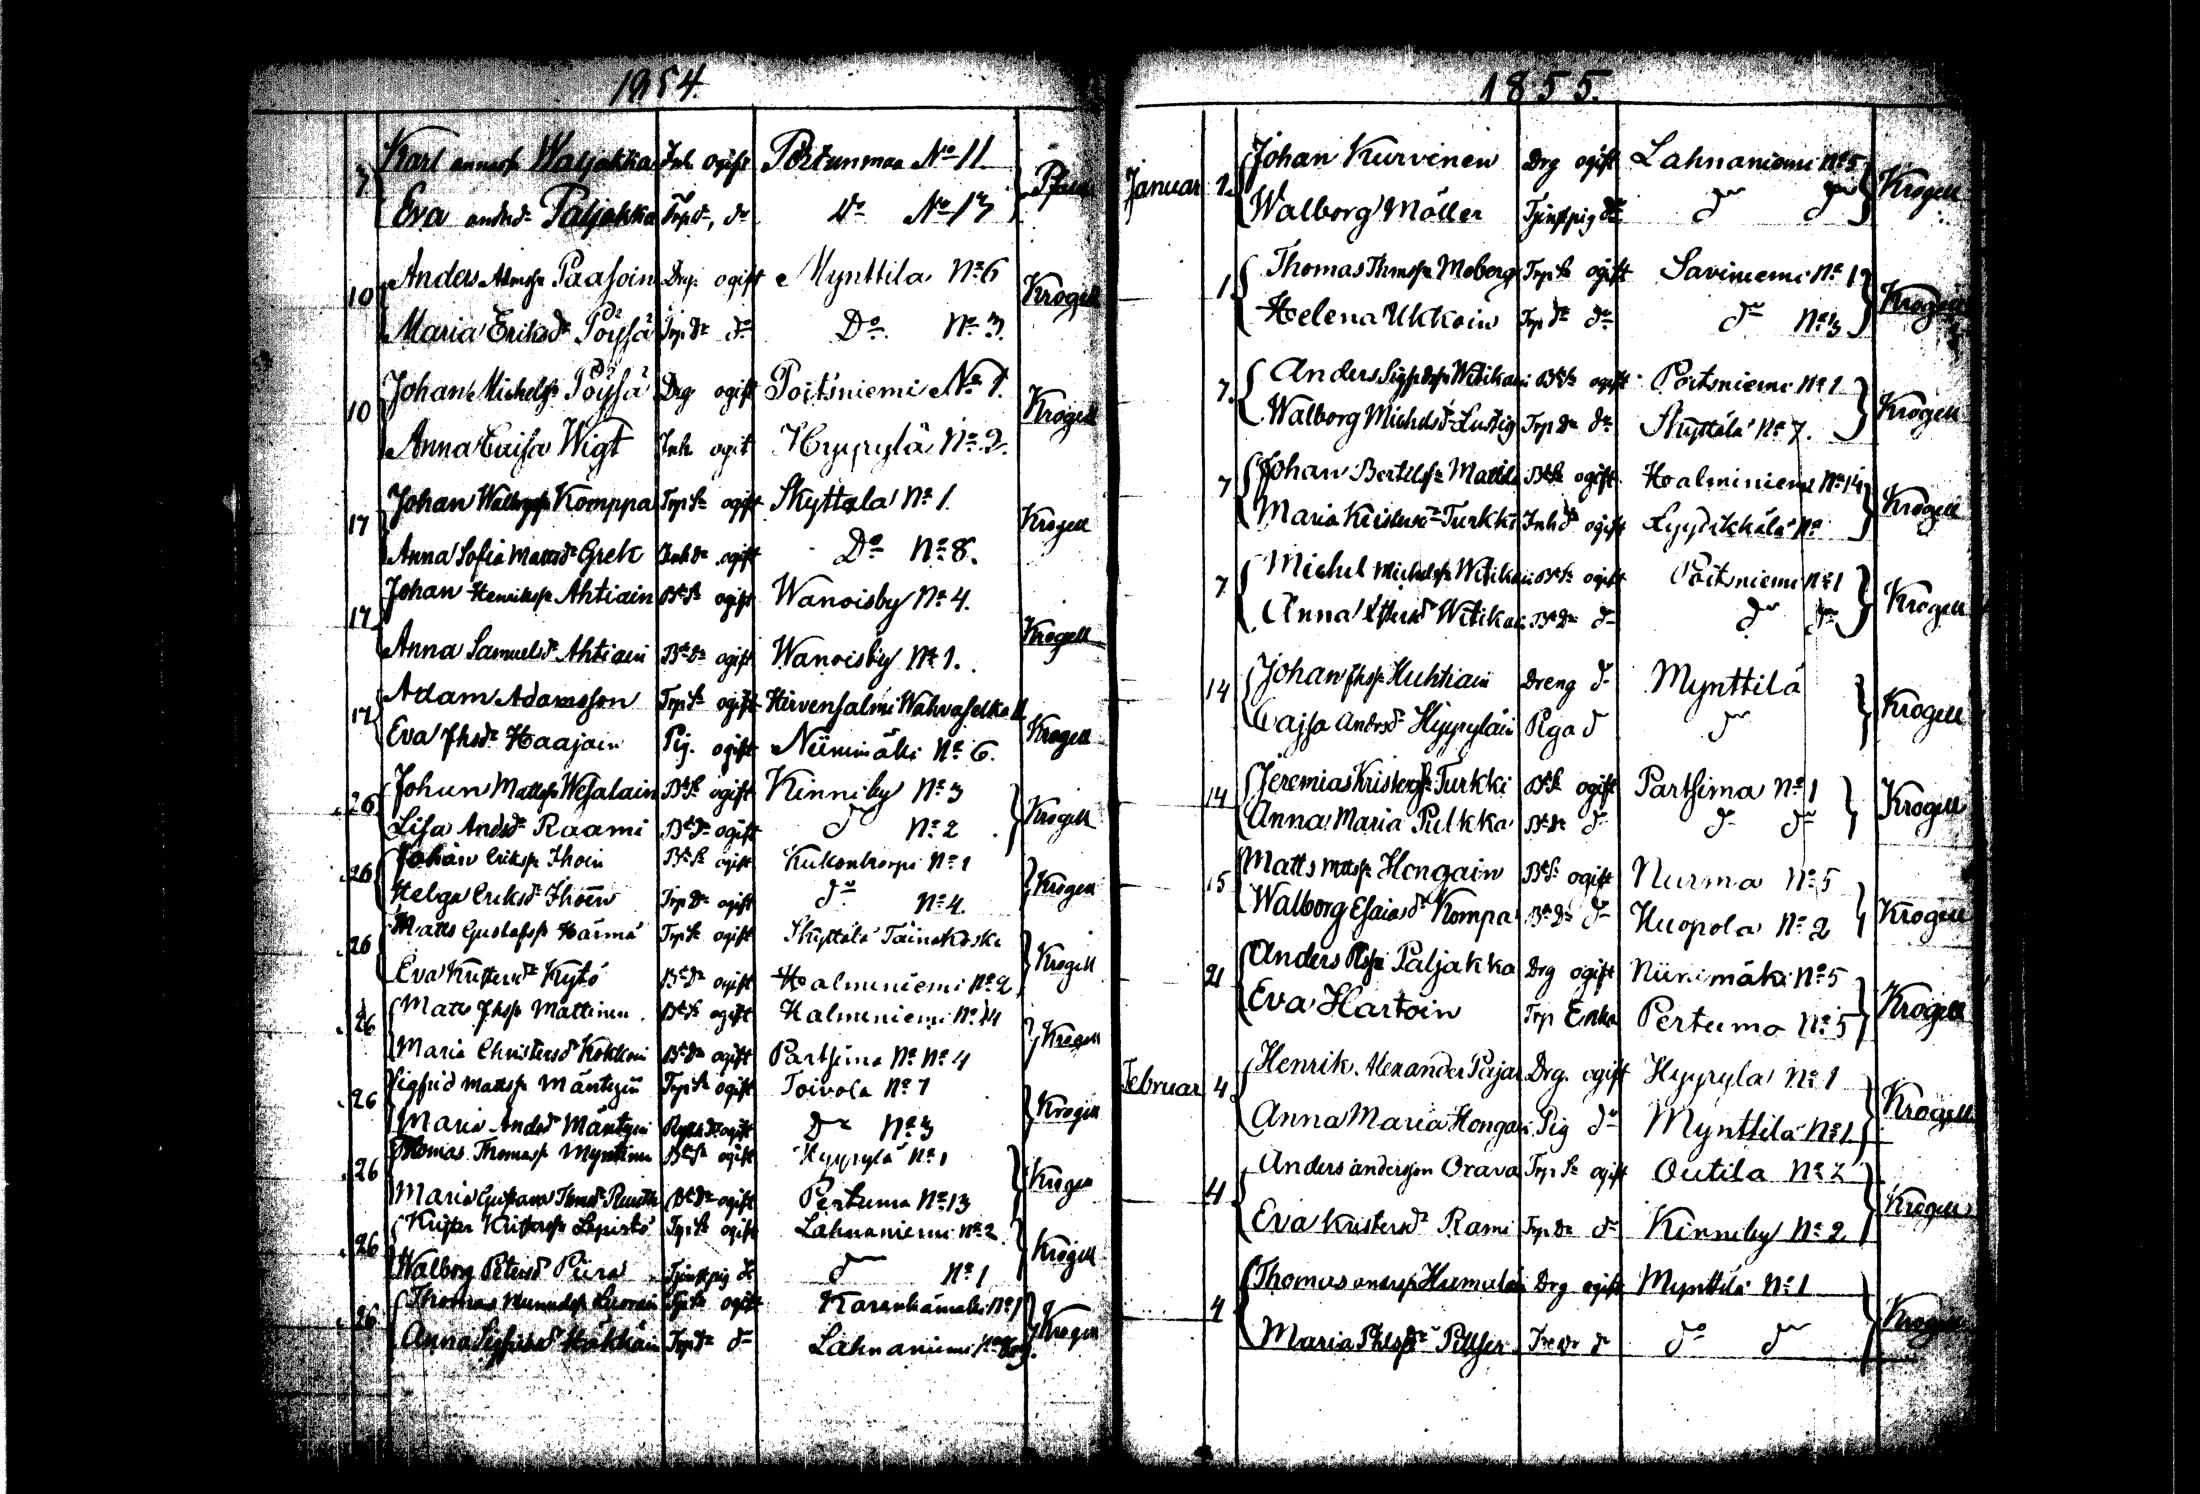 1854.
7 Karl Waljakka Inh ogift Pertunmaa No 11
Eva Paljakka Do No 13
10 Anders Paasoin Drg. ogift Mynttilä No 6 Krogell
Maria Eriksdr Pöyhä Trp Dr do Do No 3.
10 Johan Michelss Pöyhä Drg ogift Poitsniemi No 1. Krogell
Anna Caisa Wigt Inh ogit Hyyrylä No 2.
17 Johan Komppa Trp Sn ogift Skyttälä No 1. Krogell
Anna Sofia Mattsdr Grek Inh dr ogift Do No 8.
17 Johan Henrikss Ahtiain Bd Sn ogift Wanoisby No 4. Krogell
Anna Samuelsdr Ahtiain Bd Dr ogift Wanoisby No 1.
17 Adam Adamsson Trp Sn ogift Hirvensalmi Krogell
Eva Jhsdr Haajain Pig. ogift Niinimäki No 6.
26 Johan Mattss Wesalain Bd Sn ogift Kinniby No 3 Krogell
Lisa Andsdr Raami Bd Dr ogift do No 2
26 Johan Erikss Ihoin Bd Sn ogift Kukonkorpi No 1 Krogell
Helga Eriksdr Ihoin Trp Dr ogift do No 4.
26 Matts Gustafss Härmä Trp Sn ogift Skyttälä Krogell
Eva Kristersdr Kytö Bd Dr ogift Halminiemi No 2
26 Matts Jhss Mattinen Bd Sn ogift Halminiemi No 14 Krogell
Maria Christersdr Kokkoin Bd Dr ogift Partsima No No 4
26 Sigfrid Mattss Mäntyin Trp Sn ogift Toivola No 1 Krogell
Maria Andsdr Mäntyin ogift Do No 3
26 Thomas Thomass Myntinen Bd Sn ogift Hyyrylä No 1 Krogell
Maria Gustava Bd Dr ogift Pertuma No 13
26 Krister Kristerss Lepistö Trp Sn ogift Lahnaniemi No 2. Krogell
Walborg Petersdr Piira Tjenstpig do do No 1
26 Thomas ogift No 1 Krogell
Anna Sigfridsdr Trp Dr do Lahnaniemi
1855.
Januar 1. Johan Kurvinen Drg ogift Lahnaniemi No 5 Krogell
Walborg Möller Tjenstpig do do do
1 Thomas Thmss Moberg Trp Sn ogift Saviniemi No 1 Krogell
Helena Ukkoin Trp dr do do No 3
7. Anders Witikain Bd Sn ogift Poitsniemi No 1 Krogell
Walborg Michelsdr Lustig Trp Dr do Skyttälä No 7.
7 Johan Bertilss Bd Sn ogift Hoalminiemi No 14 Krogell
Maria Turkki Inh dr ogift Lyydikkälä No
7 Michel Michelss Witikain Bd Sn ogift Poitsniemi No 1 Krogell
Anna Witikain Bd Dr do do do
14 Johan Jhss Huhtiain Dreng do Mynttilä Krogell
Cajsa Andrsdr Hyyryläin Piga d do
14 Jeremias Turkki Bd Sn ogift Partsima No 1 Krogell
Anna Maria Pulkka Bd Dr do do do
15 Matts Mattss Hongain Bd Sn ogift Nurma No 5 Krogell
Walborg Esaiasdr Kompa Bd Dr do Huopola No 2
21 Anders Paljakka Drg ogift Niinimäki No 5 Krogell
Eva Hartoin Trp Enka Pertuma No 5
Februar 4 Henrik Alexander Pajar Drg. ogift Hyyrylä No 1 Krogell
Anna Maria Hongain Pig do Mynttilä No 1
4 Anders andersson Orava Trp Sn ogift Outila No 2 Krogell
Eva Kristersdr Rami Trp Dr do Kinniby No 2.
4 Thomas Drg ogift Mynttilä No 1 Krogell
Maria do do do